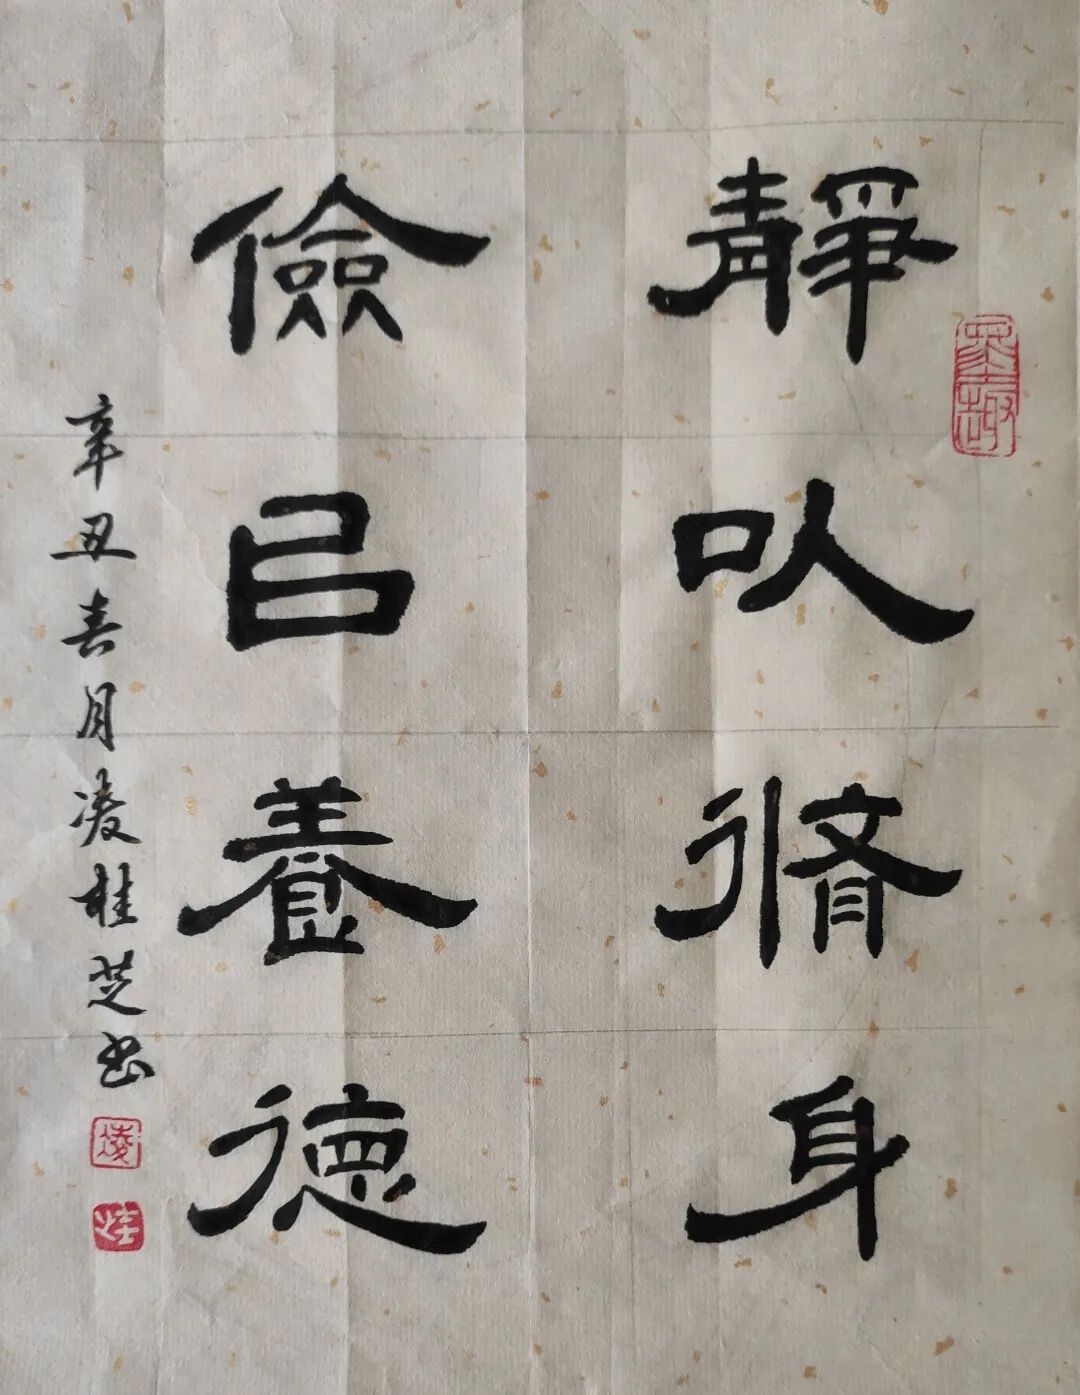 靜以脩身
儉㠯養德
辛丑春月凌桂芝书
凌